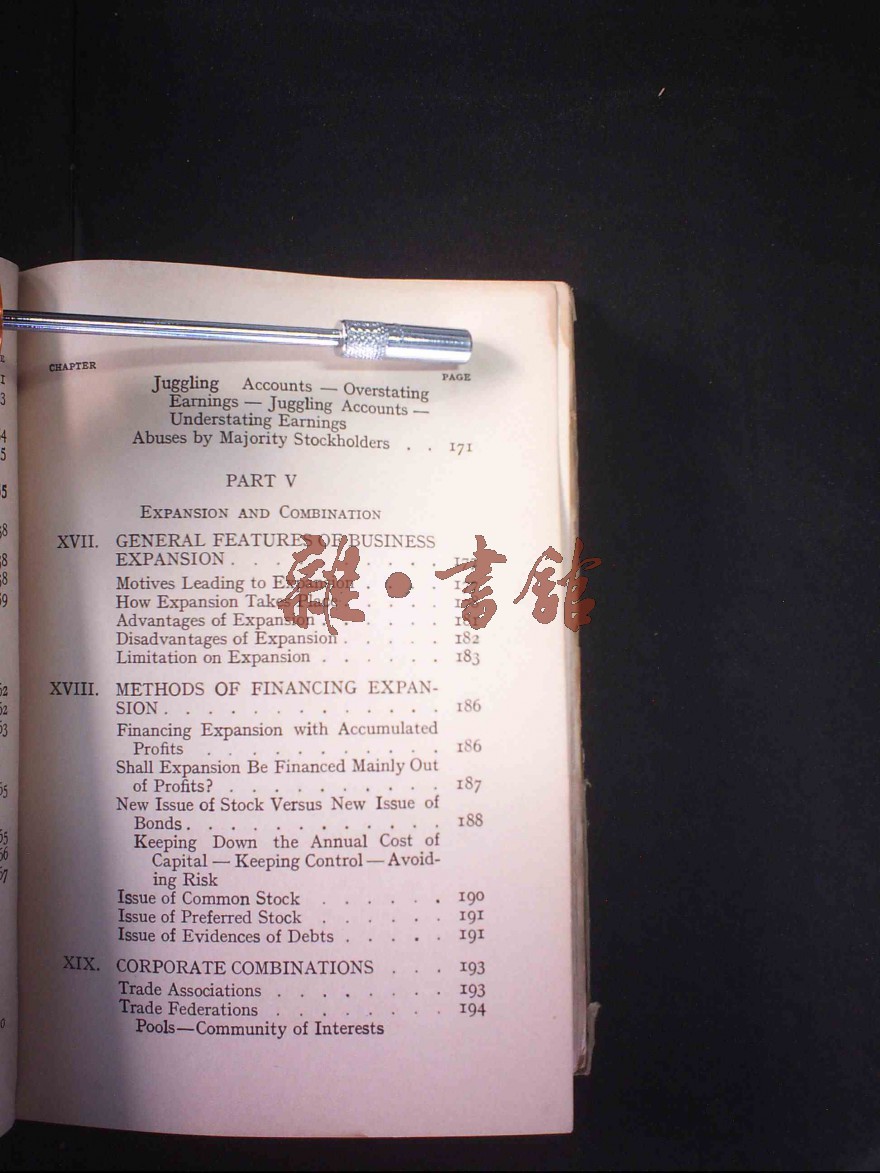 CHAPTER
PAGE
Juggling Accounts — Overstating
Earnings — Juggling Accounts —
Understating Earnings
Abuses by Majority Stockholders . . 171
PART V
EXPANSION AND COMBINATION
XVII. GENERAL FEATURES OF BUSINESS
EXPANSION . . . . . . . . . .
Motives Leading to Expansion . . . .
How Expansion Takes Place . . . . .
Advantages of Expansion . . . . . . 181
Disadvantages of Expansion . . . . . 182
Limitation on Expansion . . . . . . 183
XVIII. METHODS OF FINANCING EXPAN-
SION . . . . . . . . . . . . . 186
Financing Expansion with Accumulated
Profits . . . . . . . . . . . 186
Shall Expansion Be Financed Mainly Out
of Profits? . . . . . . . . . . 187
New Issue of Stock Versus New Issue of
Bonds . . . . . . . . . . . . 188
Keeping Down the Annual Cost of
Capital — Keeping Control — Avoid-
ing Risk
Issue of Common Stock . . . . . . 190
Issue of Preferred Stock . . . . . . 191
Issue of Evidences of Debts . . . . . 191
XIX. CORPORATE COMBINATIONS . . . 193
Trade Associations . . . . . . . . 193
Trade Federations . . . . . . . . 194
Pools—Community of Interests
雜·書館